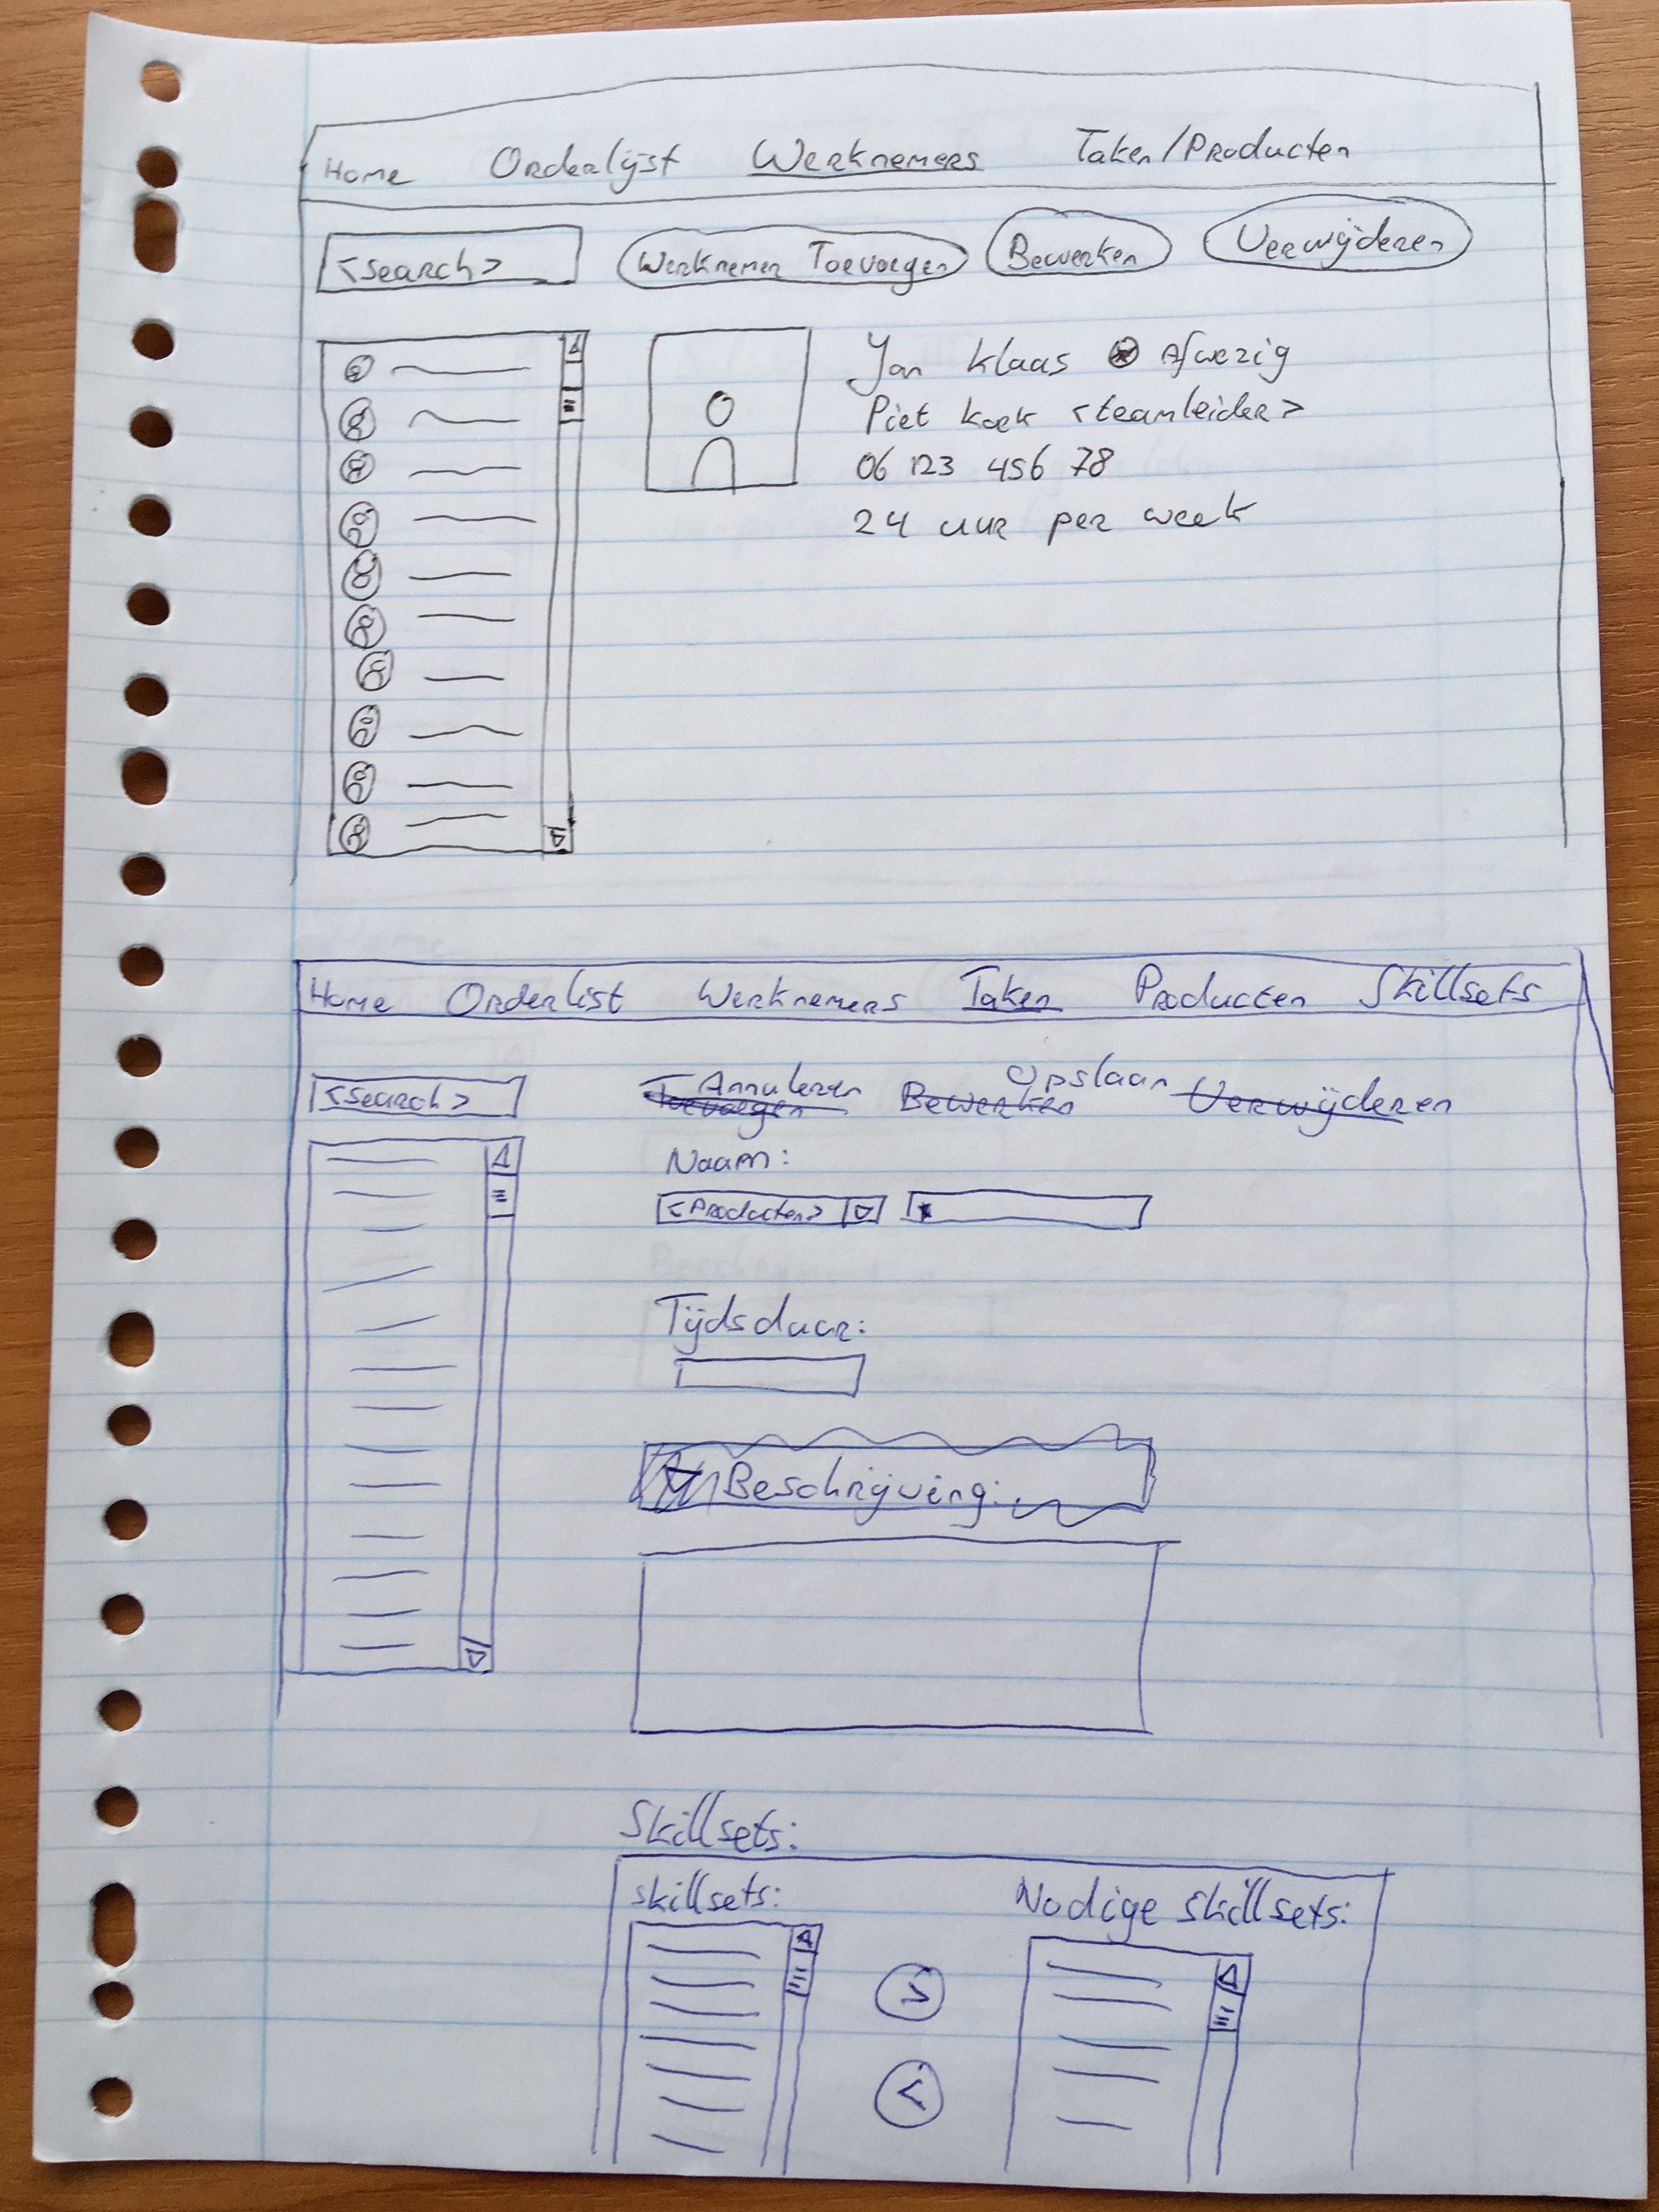 Home Orderlijst Werknemers Taken/Producten
<search> Werknemer Toevoegen Bewerken Verwijderen
Jan Klaas Afwezig
Piet Koek <teamleider>
06 123 456 78
24 uur per week
Home Orderlist Werknemers Taken Producten Skillsets
<search> Annuleren Opslaan
Toevoegen Bewerken Verwijderen
Naam:
<Producten>
Tijdsduur:
Beschrijving:
Skillsets:
skillsets: Nodige skillsets:
>
<